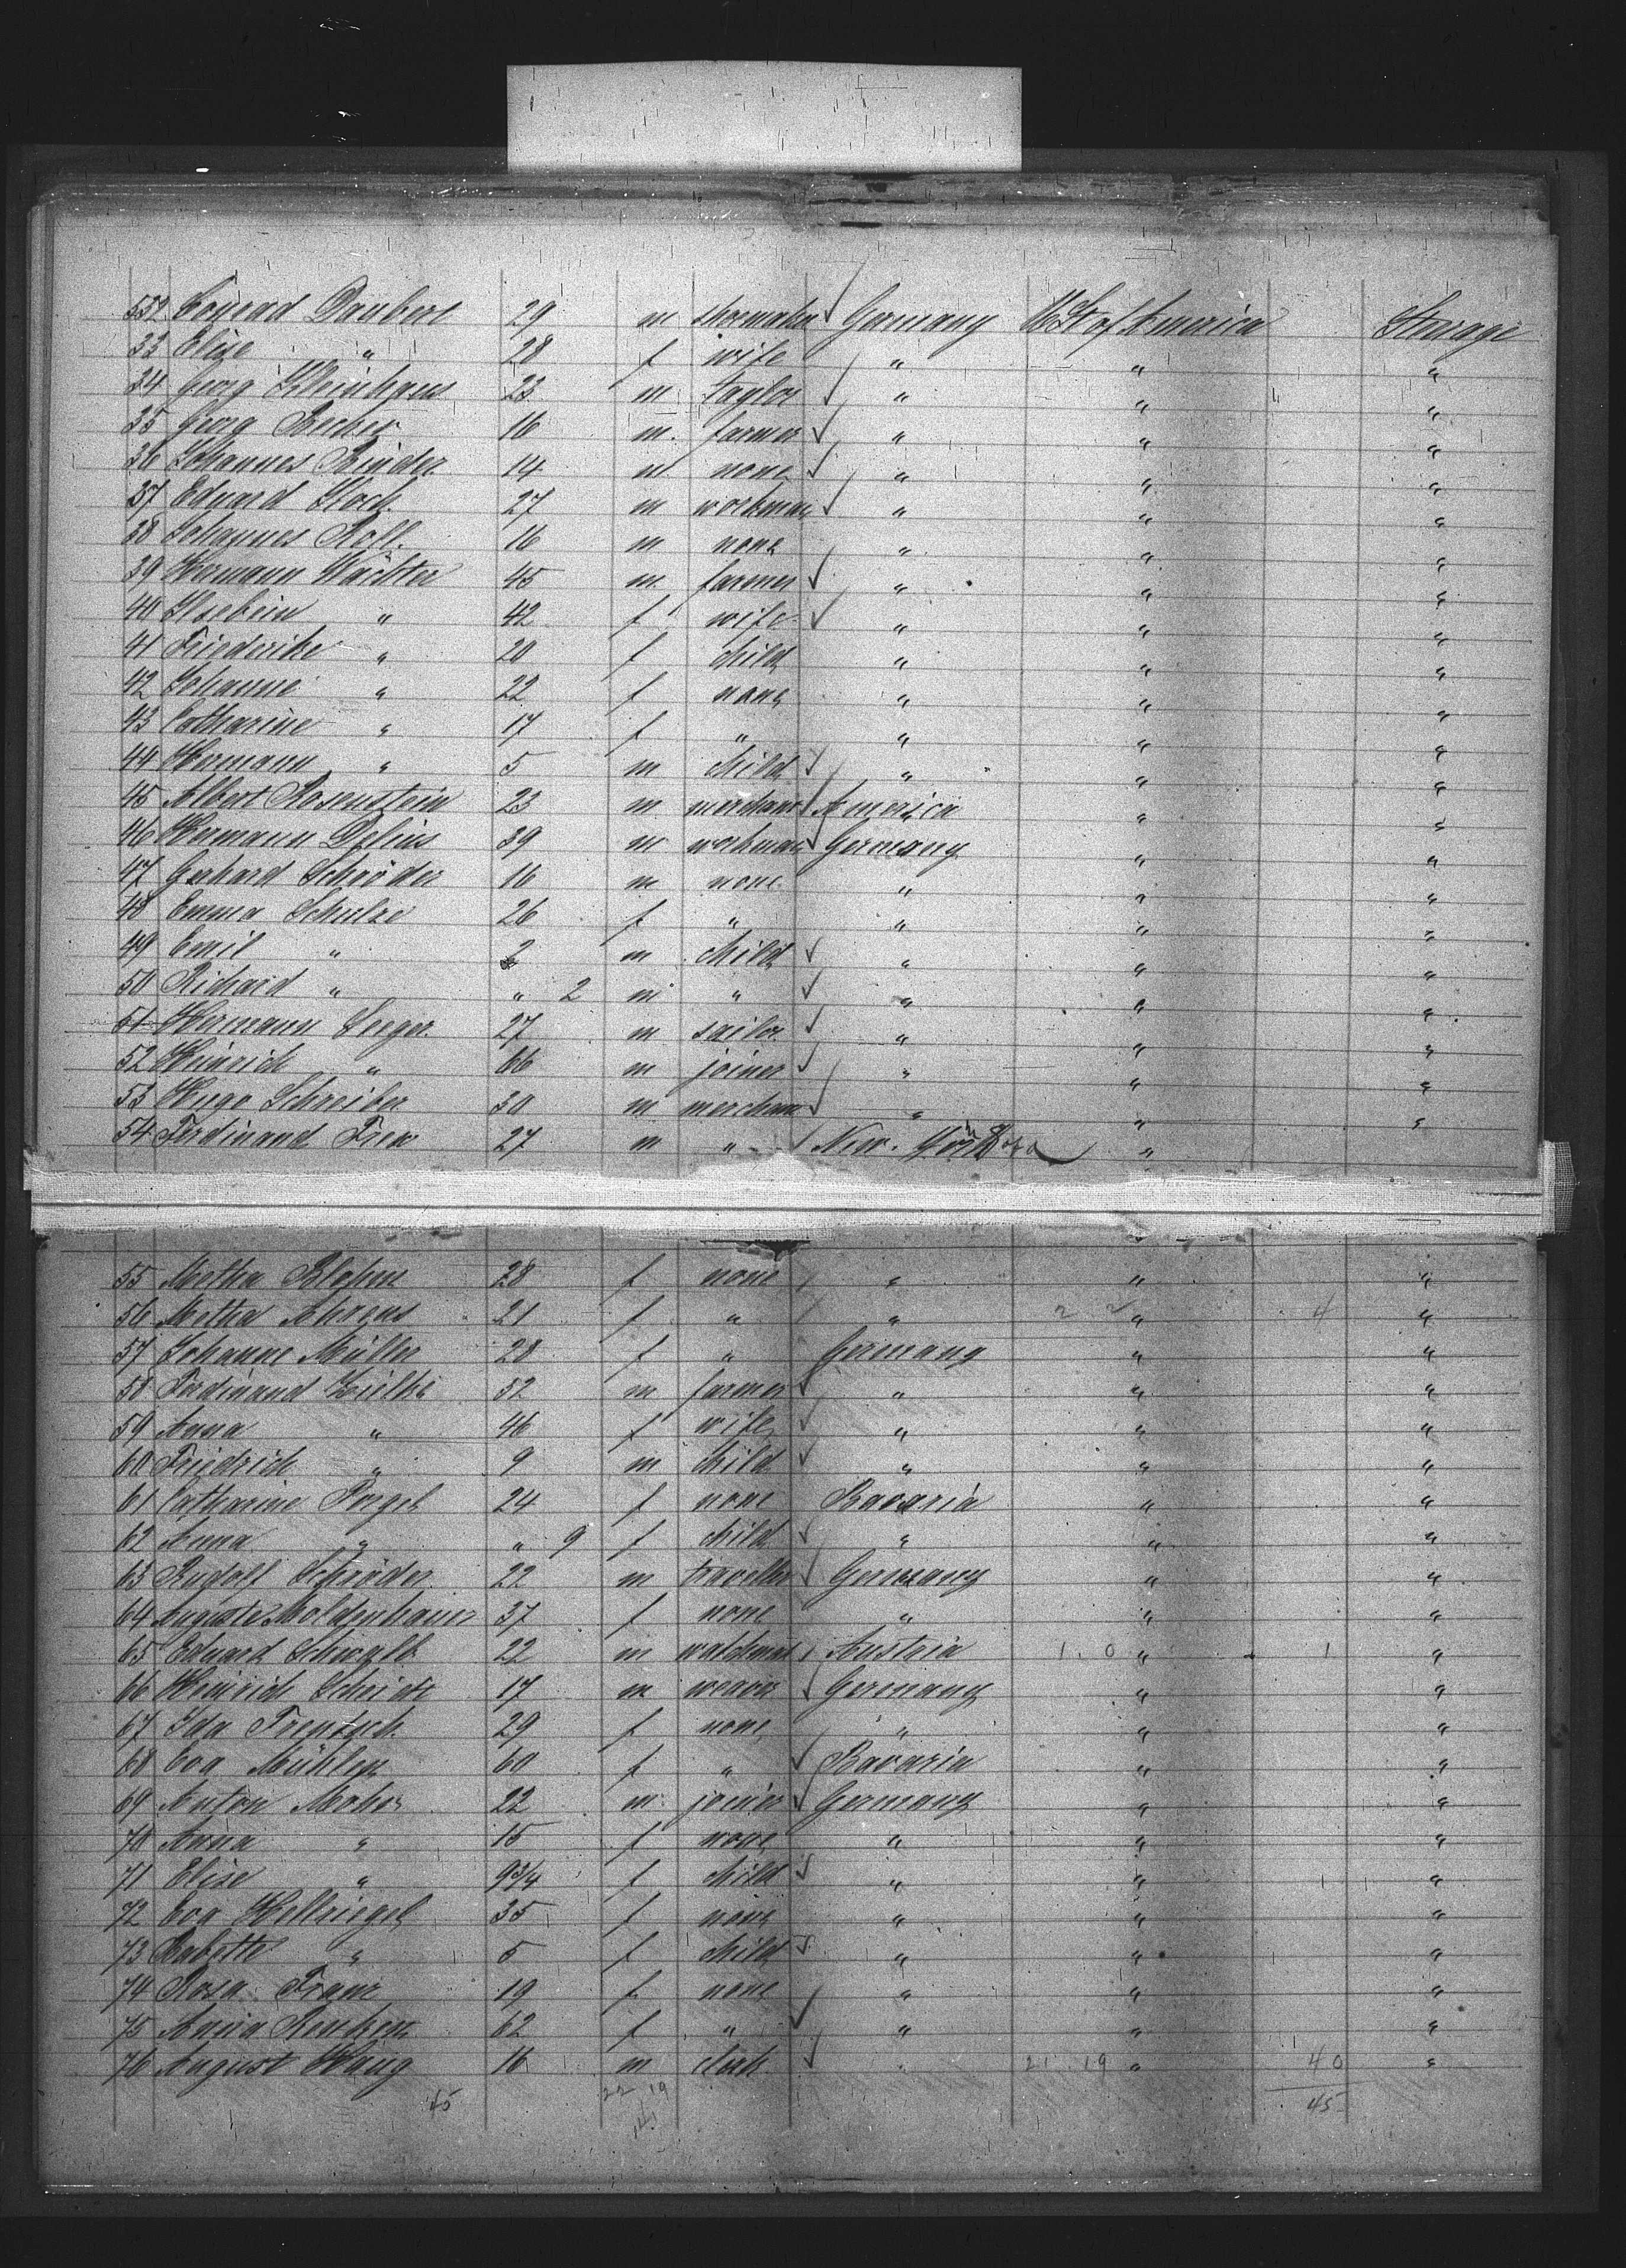 552 Conrad Daubert 29 m shoemaker Germany U St of America Steerage
33 Elise " 28 f wife " " "
34 Georg Kleinhaus 23 m taylor " " "
35 Georg Becher 16 m farmer " " "
36 Johannes Binder 14 m none " " "
37 Eduard Koch 27 m workman " " "
38 Johannes Roll 16 m none " " "
39 Hermann Wächter 45 m farmer " " "
40 Ilsebein " 42 f wife " " "
41 Friederike " 20 f child " " "
42 Johanne " 22 f none " " "
43 Catharine " 17 f " " " "
44 Hermann " 5 m child " " "
45 Albert Rosenstein 23 m merchant America " "
46 Hermann Delius 39 m workman Germany " "
47 Gerhard Schröder 16 m none " " "
48 Emma Schulze 26 f " " " "
49 Emil " 2 m child " " "
50 Richard " " 2 m " " " "
51 Hermann Seeger 27 m sailor " " "
52 Heinrich " 66 m joiner " " "
53 Hugo Schreiber 30 m merchant " " "
54 Ferdinand Frew 27 m " New-York "
55 Metha Blohm 28 f none " " "
56 Metha Ahrens 21 f " " 2 2 " 4 "
57 Johanne Müller 28 f " Germany " "
58 Ferdinand Zielke 52 m farmer " " "
59 Anna " 46 f wife " " "
60 Friedrich " 9 m child " " "
61 Catharine Porzel 24 f none Bavaria " "
62 Anna " " 9 f child " " "
63 Rudolf Schröder 22 m traveller Germany " "
64 Auguste Moldenhauer 37 f none " " "
65 Eduard Schwalb 22 m watchmak Austria 1 0 " 1 "
66 Heinrich Scheidt 17 m weaver Germany " "
67 Ida Frentzch 29 f none " " "
68 Eva Mühler 60 f " Bavaria " "
69 Anton Mohr 22 m joiner Germany " "
70 Anna " 15 f none " " "
71 Elise " 9 3/4 f child " " "
72 Eva Hellriegel 35 f none " " "
73 Babette " 5 f child " " "
74 Rosa Franz 19 f none " " "
75 Anna Renken 62 f " " " "
76 August Haug 16 m clerk " 21 19 " 40 "
45 22 19 45
41